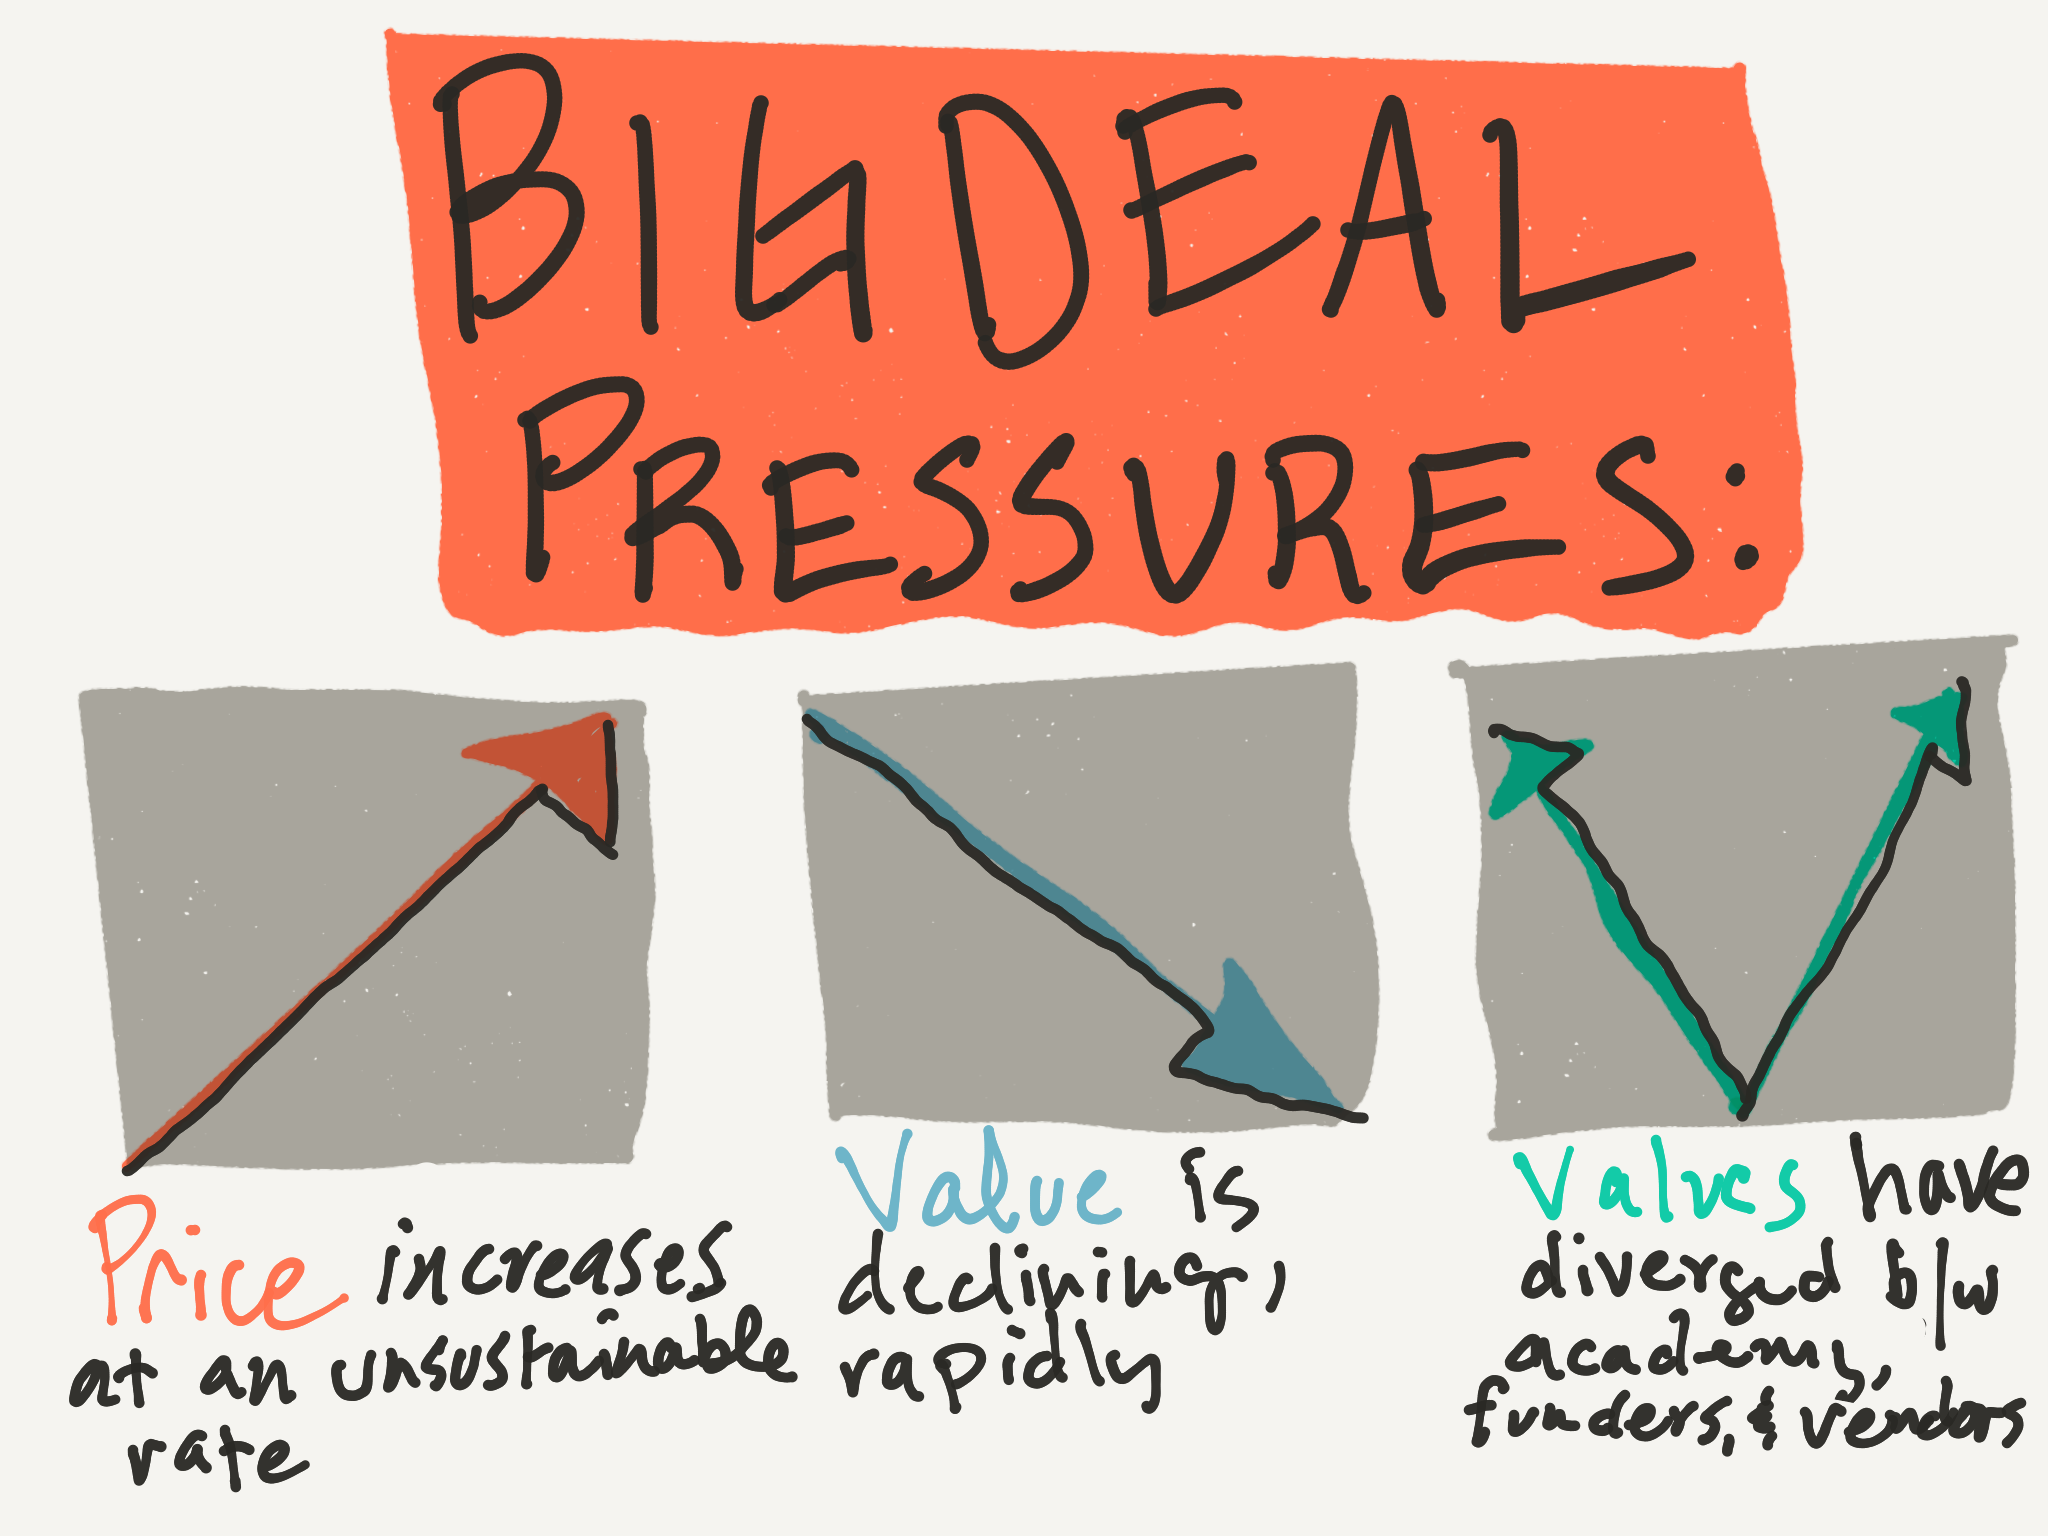 BIG DEAL
PRESSURES:
Price increases
at an unsustainable
rate
Value is
declining,
rapidly
Values have
diverged b/w
academy,
funders, & vendors